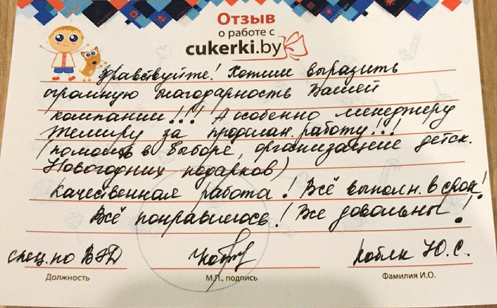 Отзыв
о работе с
cukerki.by
Здравствуйте! Хотим выразить
огромную благодарность Вашей
компании!!! А особенно менеджеру
за продел. работу!!!
(помощь в выборе, организацие детск.
Новогодних подарков)
Качественная работа! Всё выполн. в срок!
Всё понравилось! Все довольны!
спец. по
Должность
М.П., подпись
Ю.С.
Фамилия И.О.